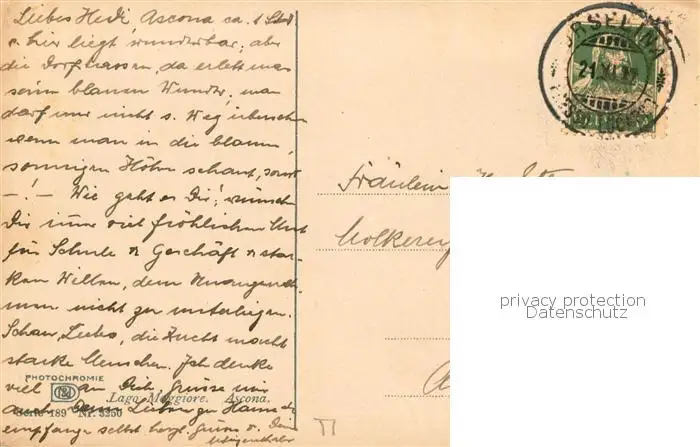 Liebes Hedi Ascona ca. 1 Std.
v. hier liegt wunderbar, aber
die Dorfstrassen, da erlebt man
sein blaues Wunder, man
darf nur nicht s. Weg übersehen
wenn man in die blauen,
sonnigen Höhen schaut, sonst
-!- Wie geht es Dir; wünsche
Dir immer viel fröhlichen Mut
für Schule & Geschäft & star-
ken Willen, dem Unangeneh-
men nicht zu unterliegen.
Schau, Liebes, die Zucht macht
starke Menschen. Ich denke
viel an Dich, grüsse mir
auch Deine Lieben zu Hause &
empfange selbst herzl. Grüsse v. Deiner
PHOTOCHROMIE
Lago Maggiore. Ascona.
Serie 189 Nr. 3250
ORSELINA
21.XI.
Fräulein
Molkerei
privacy protection
Datenschutz